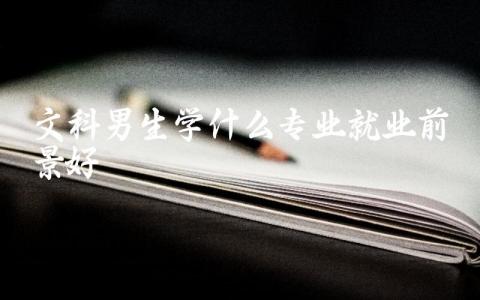 文科男生学什么专业就业前
景好